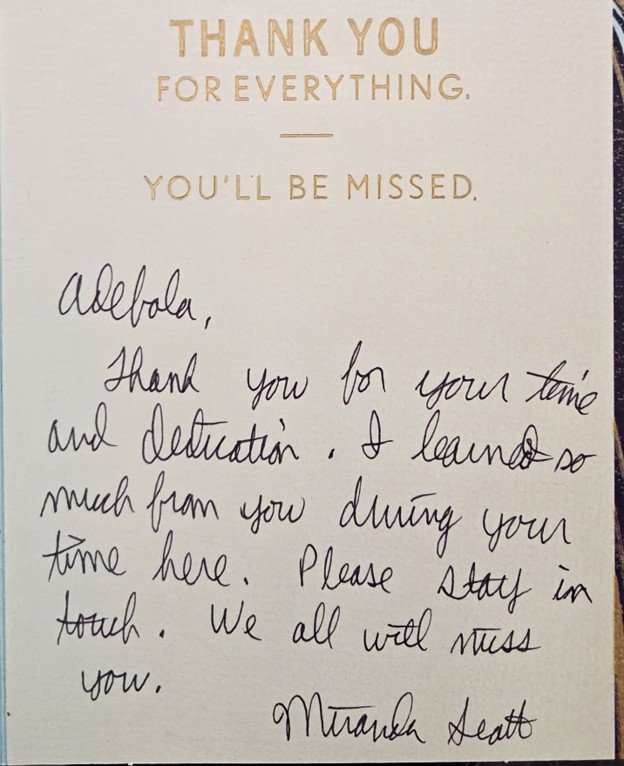 THANK YOU
FOR EVERYTHING.
YOU'LL BE MISSED.
Adebola,
Thank you for your time
and dedication. I learned so
much from you during your
time here. Please stay in
touch. We all will miss
you.
Miranda Scott